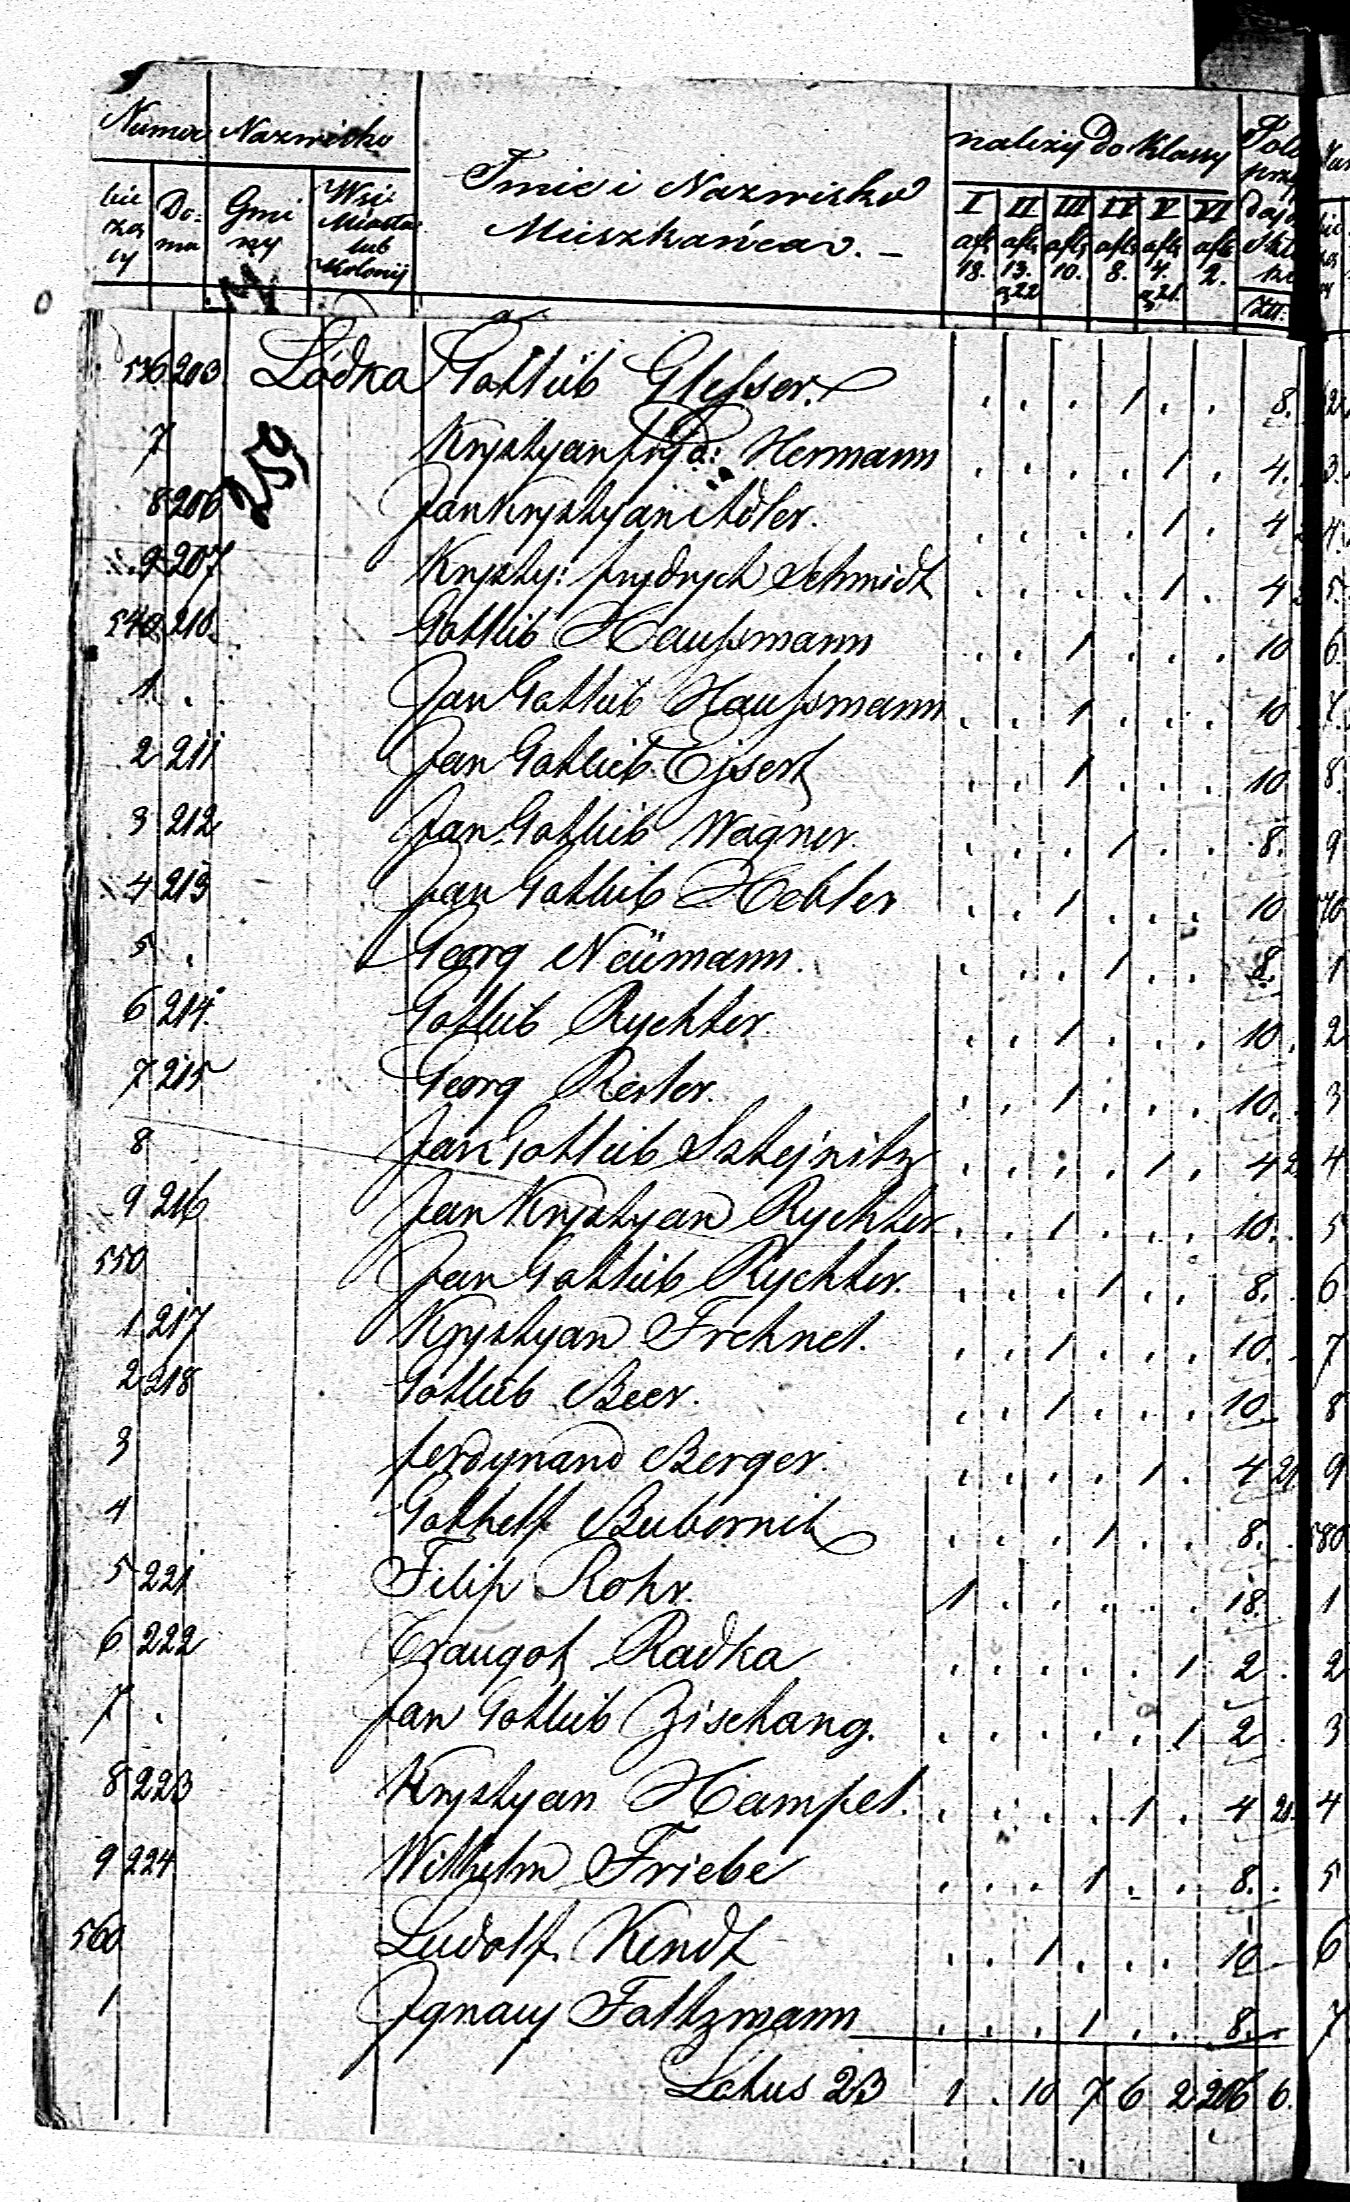 Numer Nazwisko Imie i Nazwisko Mieszkańca. - należy do Klassy
bie żący Do= mu Gmi ny Wsi Miasta lub Kolonij I II III IV V VI
18. 13. g 22 10. 8. 4. g 21. 2.
259
536 203 Łódka Gottlieb Glesser. . . . 1 . . 8.
7 Krystyan Fryd: Hermann . . . . 1 . 4.
8 206 Jan Krystyan Adler. . . . . 1 . 4
9 207 Krysty: Frydrych Schmidt . . . . 1 . 4
540. 210. Gottlib Haussmann . . 1 . . . 10
1 . Jan Gottlieb Haussmann . . 1 . . . 10
2 211 Jan Gottlieb Ejsert . . 1 . . . 10
3 212 Jan Gottlieb Wagner. . . . 1 . . 8.
4 213 Jan Gottlieb Hebler . . 1 . . . 10
5 . Georg Neümann. . . . 1 . . 8.
6 214. Gottlieb Rychter. . . 1 . . . 10.
7 215 Georg Reiter. . . 1 . . . 10.
8 Jan Gottlieb Sztejnitz . . . . 1 . 4 2
9 216 Jan Krystyan Rychter . . 1 . . . 10.
550 Jan Gottlieb Rychter. . . . 1 . . 8.
1 217 Krystyan Frehnel. . . 1 . . . 10.
2 218 Gottlieb Beer. . . 1 . . . 10
3 Ferdynand Berger. . . . . 1 . 4 21
4 Gotthelf Bubernik . . . 1 . . 8.
5 221 Filip Rohr. 1 . . . . . 18.
6 222 Traugot Radka . . . . . 1 2.
7 . Jan Gottlieb Zischang. . . . . . 1 2.
8 223 Krystyan Hampel. . . . . 1 . 4 21
9 224 Wilhelm Friebe . . . 1 . . 8.
560 Ludolf Kindt . . 1 . . . 10
1 Ignacy Faltzmann . . . 1 . . 8.
Latus 23 1 . 10 7 6 2 206 6.